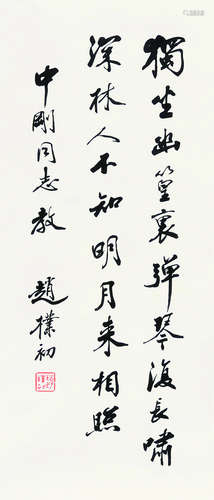 獨坐幽篁裏彈琴復長嘯
深林人不知明月来相照
中剛同志教
趙樸初